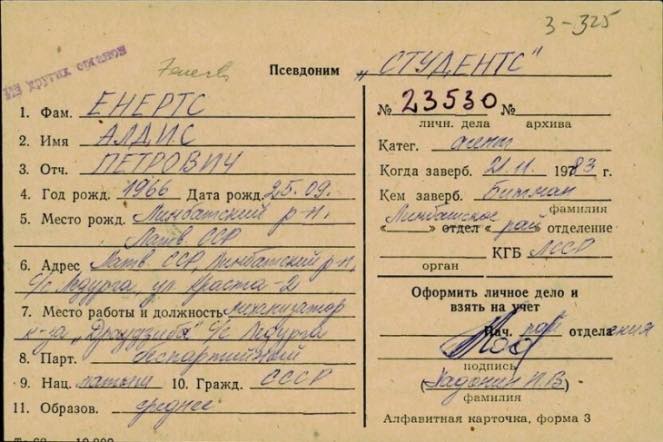 3-325
Псевдоним „СТУДЕНТС"
1. Фам. ЕНЕРТС
2. Имя АЛДИС
3. Отч. ПЕТРОВИЧ
4. Год рожд. 1966 Дата рожд. 25.09.
5. Место рожд. Лимбажский р-н,
Латв. ССР
6. Адрес Латв. ССР, Лимбажский р-н,
с/с Ледурга, ул. Краста-2
7. Место работы и должность механизатор
к-за „Драудзиба" с/с Ледурга
8. Парт. беспартийный
9. Нац. латыш 10. Гражд. СССР
11. Образов. среднее
№ 23530 №
личн. дела архива
Катег. агент
Когда заверб. 21.11 1983 г.
Кем заверб. Битман
фамилия
Лимбажское
„ " отдел „рай отделение
КГБ ЛССР
орган
Оформить личное дело и
взять на учет
Нач. рай отделения
подпись
(Кадонин И.В)
фамилия
Алфавитная карточка, форма 3